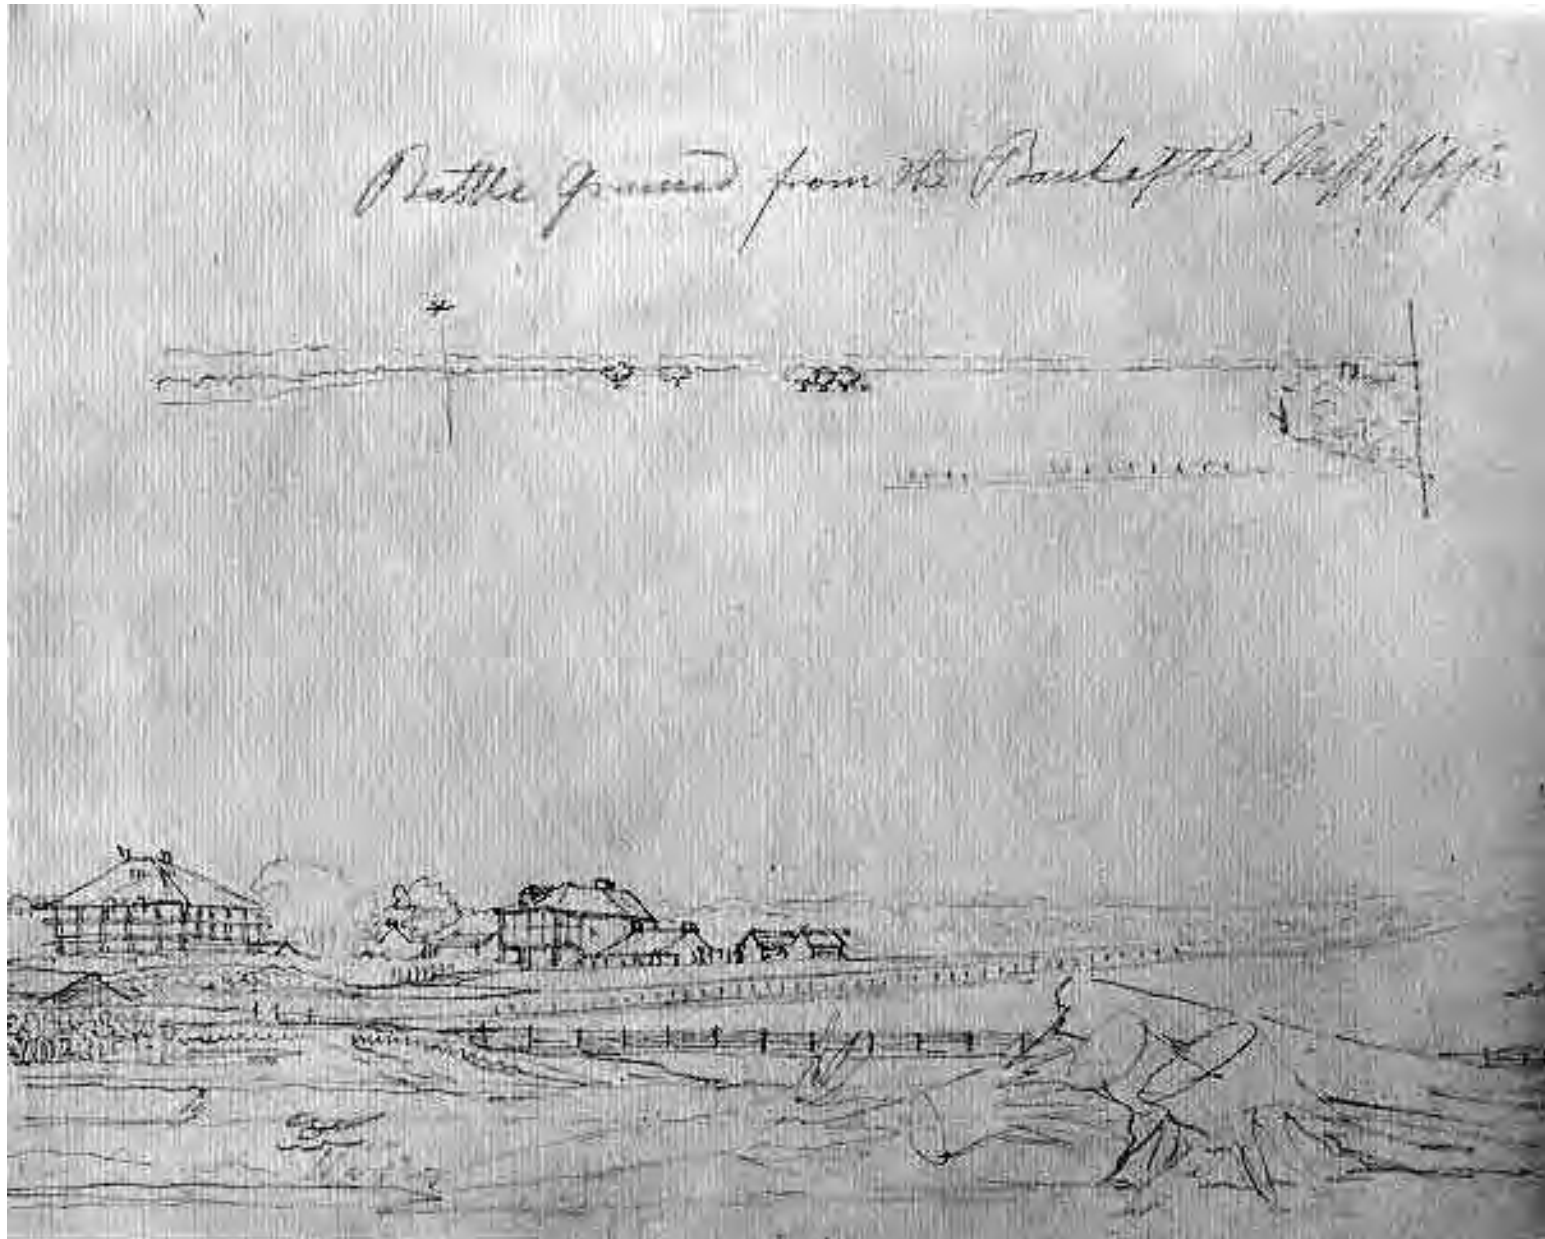 Battle Ground from the Bank of the Mississippi